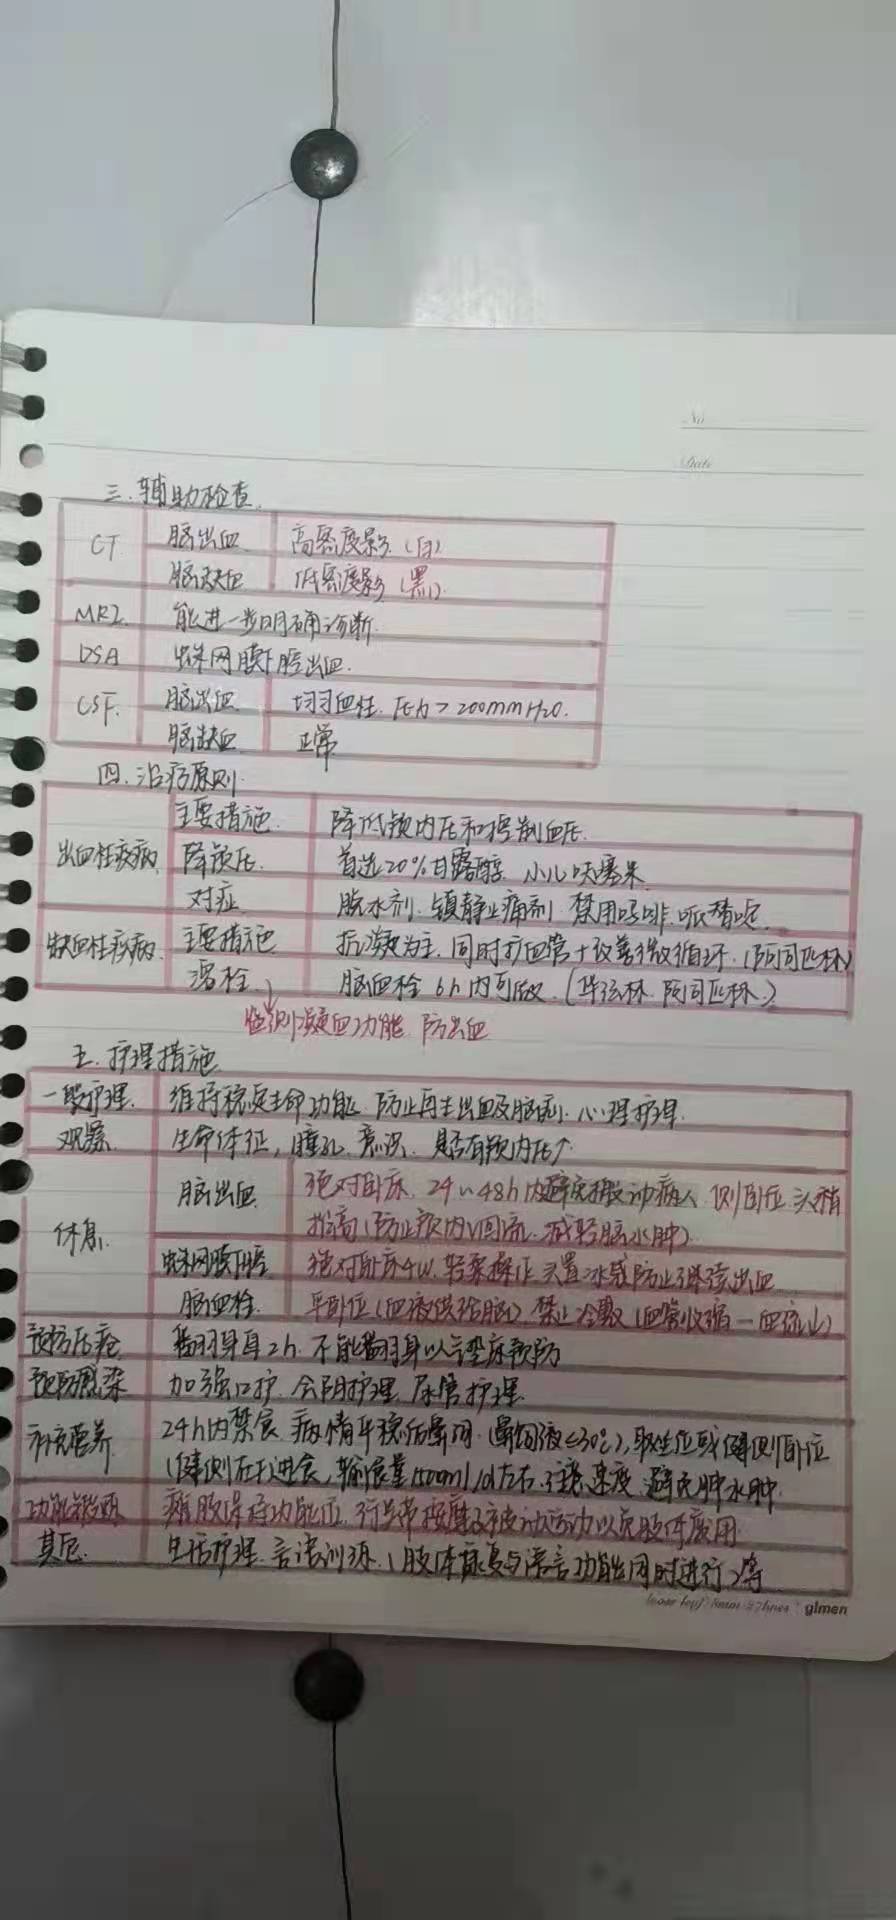 No
Date
三.辅助检查.
CT 脑出血 高密度影.(白).
脑缺血 低密度影(黑).
MRI. 能进一步明确诊断.
DSA 蛛网膜下腔出血.
CSF. 脑出血 均匀血性. 压力>200mmH2O.
脑缺血 正常
四.治疗原则.
主要措施. 降低颅内压和控制血压.
出血性疾病. 降颅压. 首选20%甘露醇. 小儿呋塞米
对症 脱水剂.镇静止痛剂 禁用吗啡.哌替啶.
缺血性疾病. 主要措施. 抗凝为主.同时扩血管+改善微循环.(阿司匹林)
溶栓. 脑血栓 6h内可做.(华法林.阿司匹林.)
监测凝血功能 防出血
五.护理措施
一般护理. 维持稳定生命功能 防止再生出血及脑疝.心理护理.
观察. 生命体征,瞳孔.意识.是否有颅内压↑
脑出血 绝对卧床.24~48h内避免搬动病人.侧卧位.头稍
休息. 抬高(防止颅内V回流.减轻脑水肿)
蛛网膜下腔 绝对卧床4W.轻柔操作 头置冰袋防止继续出血
脑血栓. 平卧位(血液供给脑).禁止冷敷(血管收缩-血流少)
预防压疮 翻身2h.不能翻身以气垫床预防
预防感染 加强口护.会阴护理.尿管护理.
补充营养 24h内禁食.病情平稳后鼻饲.(鼻饲液≤30℃),取坐位或健侧卧位
(健侧在下进食,输液量1500ml/d左右.注意速度.避免肺水肿.
功能锻炼 瘫肢保持功能位.行按摩及被动运动以免肢体废用.
其后. 生活护理.言语训练.(肢体康复与语言功能同时进行)等
loose leaf/8mm*27lines glmen